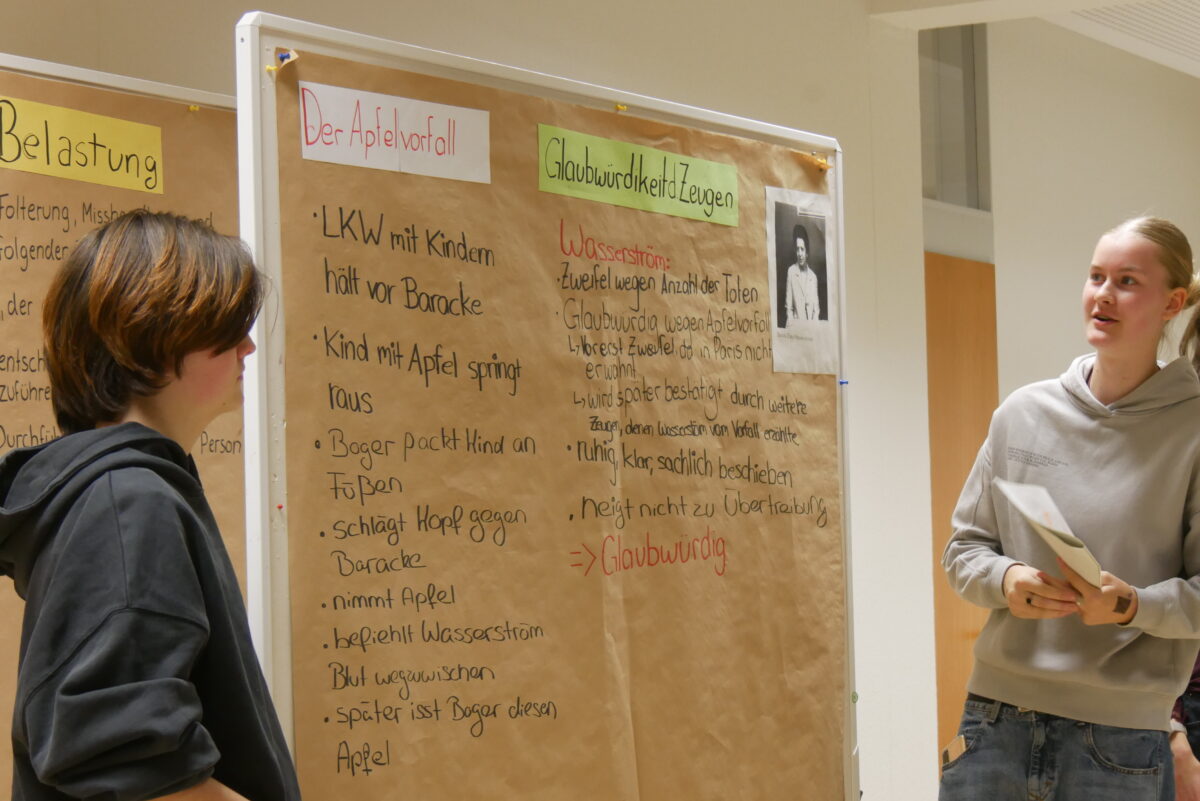 Belastung
Folterung, Missh
Folgender
, der
entsch
zuführe
Durchfü
Person
Der Apfelvorfall
· LKW mit Kindern
hält vor Baracke
· Kind mit Apfel springt
raus
· Boger packt Kind an
Füßen
· schlägt Kopf gegen
Baracke
· nimmt Apfel
· befiehlt Wasserström
Blut wegzuwischen
· später isst Boger diesen
Apfel
Glaubwürdikeit d Zeugen
Wasserström:
· Zweifel wegen Anzahl der Toten
· Glaubwürdig wegen Apfelvorfall
↳ Vorerst Zweifel da in Paris nicht
erwähnt
↳ wird später bestätigt durch weitere
Zeugen, denen Wasserström vom Vorfall erzählte
· ruhig, klar, sachlich beschieben
· neigt nicht zu Übertreibung
=> Glaubwürdig